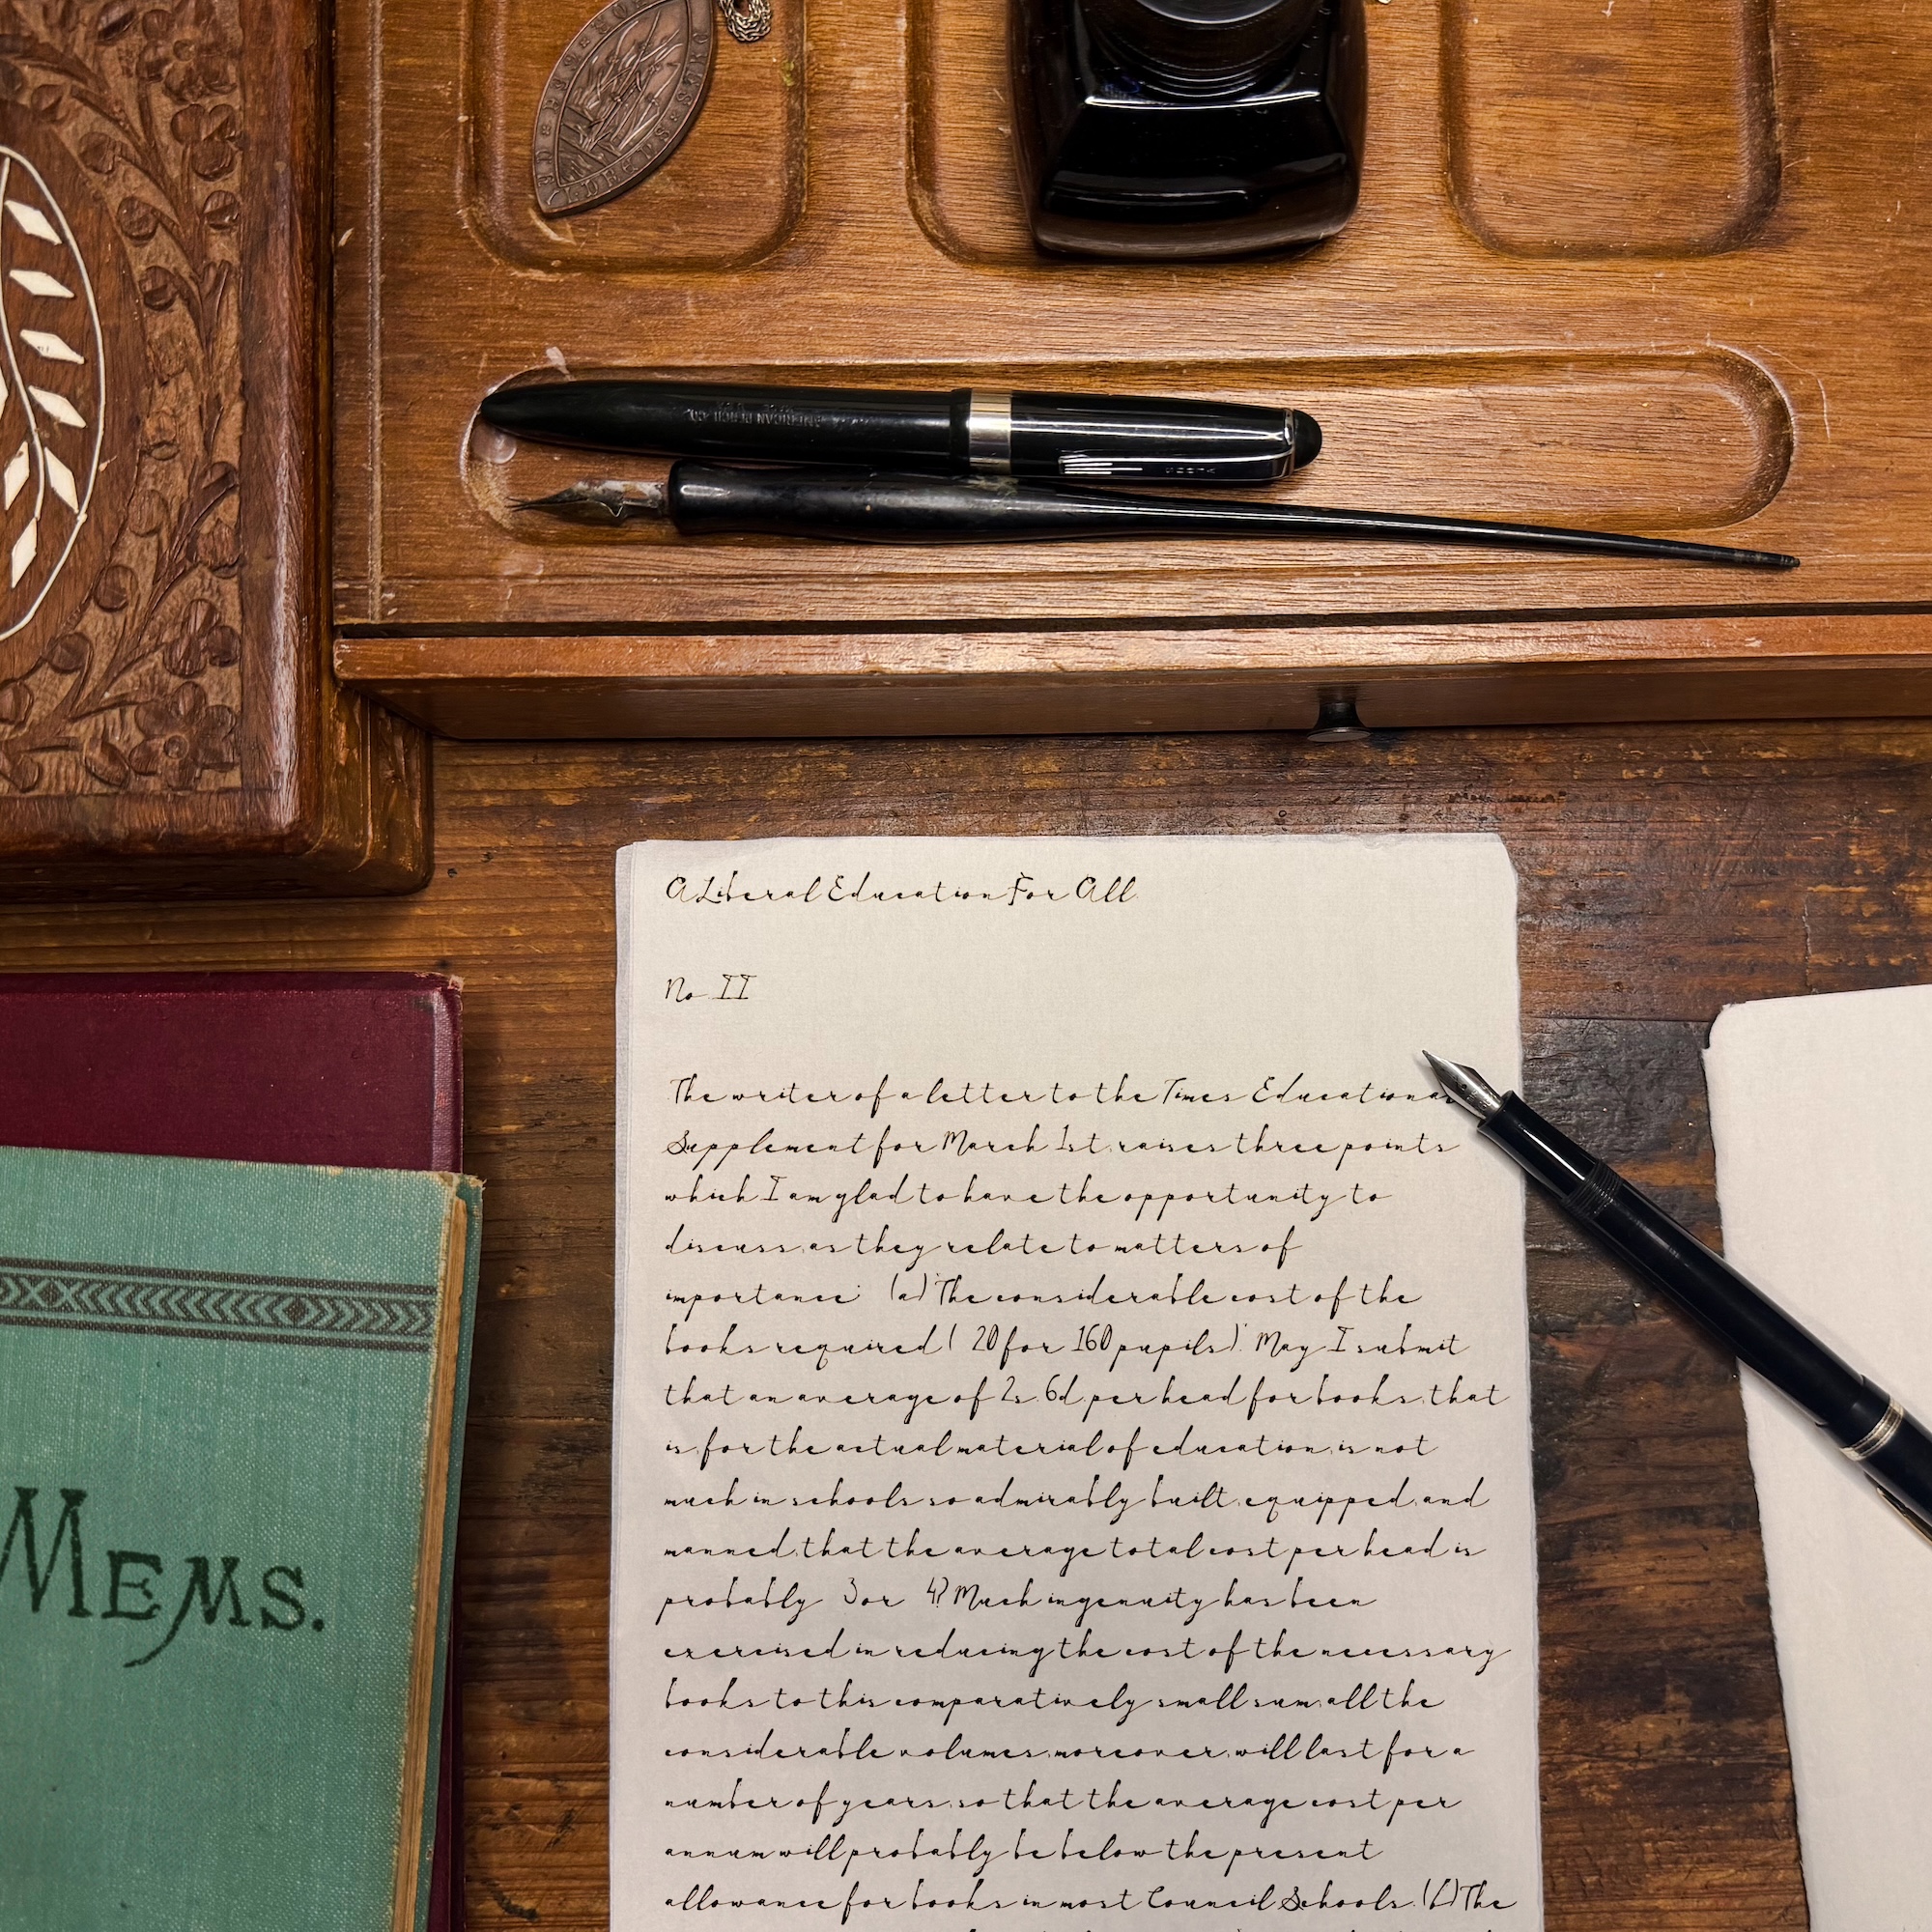 A Liberal Education For All.
No. II
The writer of a letter to the Times Educational
Supplement for March 1st, raises three points
which I am glad to have the opportunity to
discuss, as they relate to matters of
importance: (a) 'The considerable cost of the
books required ( 20 for 160 pupils).' May I submit
that an average of 2s. 6d. per head for books, that
is, for the actual material of education, is not
much in schools so admirably built, equipped, and
manned, that the average total cost per head is
probably 3 or 4? Much ingenuity has been
exercised in reducing the cost of the necessary
books to this comparatively small sum; all the
considerable volumes, moreover, will last for a
number of years, so that the average cost per
annum will probably be below the present
allowance for books in most Council Schools. (b) The
MEMS.
AMERICAN PENCIL CO.